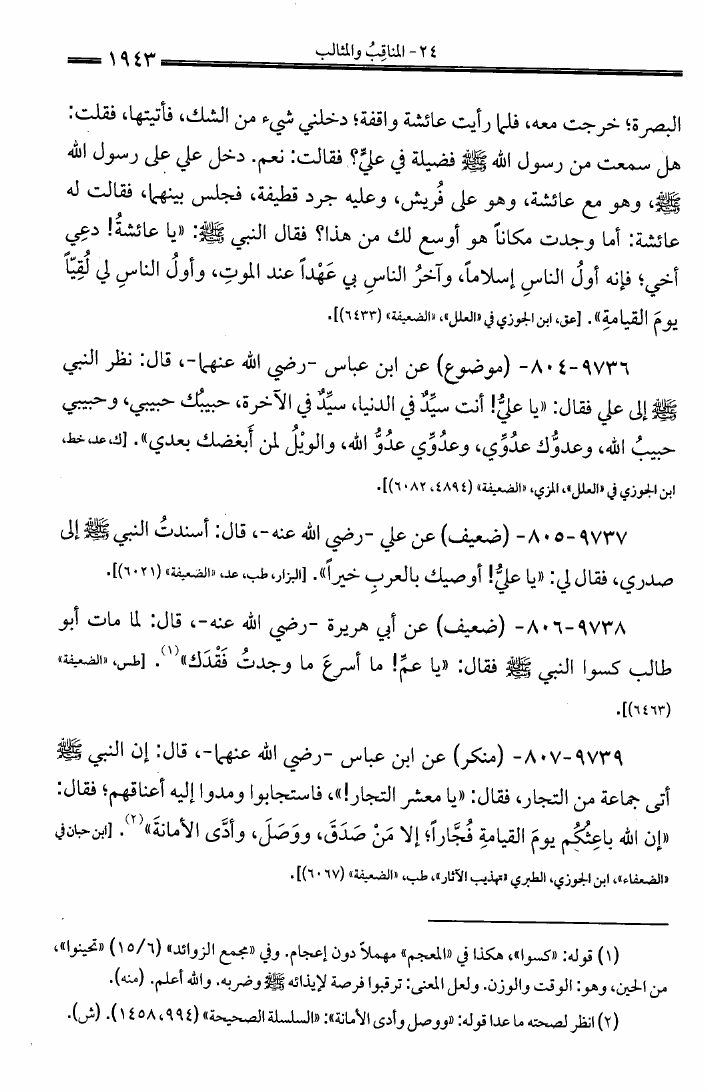 ٢٤- المناقِبُ والمثالب
١٩٤٣
البصرة؛ خرجت معه، فلما رأيت عائشة واقفة؛ دخلني شيء من الشك، فأتيتها، فقلت:
هل سمعت من رسول الله ﷺ فضيلة في عليٍّ؟ فقالت: نعم. دخل علي على رسول الله
ﷺ، وهو مع عائشة، وهو على فُريش، وعليه جرد قطيفة، فجلس بينهما، فقالت له
عائشة: أما وجدت مكاناً هو أوسع لك من هذا؟ فقال النبي ﷺ: «يا عائشةُ! دعِي
أخي؛ فإنه أولُ الناسِ إسلاماً، وآخرُ الناسِ بي عَهْداً عند الموتِ، وأولُ الناسِ لي لُقِيّاً
يومَ القيامةِ». [عق، ابن الجوزي في «العلل»، «الضعيفة» (٦٤٣٣)].
٩٧٣٦-٨٠٤- (موضوع) عن ابن عباس -رضي الله عنهما-، قال: نظر النبي
ﷺ إلى علي فقال: «يا عليُّ! أنت سيِّدٌ في الدنيا، سيِّدٌ في الآخرة، حبيبُك حبيبي، وحبيبي
حبيبُ الله، وعدوُّك عدُوِّي، وعدُوِّي عدُوُّ الله، والويْلُ لمن أبغضك بعدي». [ك، عد، خط،
ابن الجوزي في «العلل»، المزي، «الضعيفة» (٤٨٩٤، ٦٠٨٢)].
٩٧٣٧-٨٠٥- (ضعيف) عن علي -رضي الله عنه-، قال: أسندتُ النبي ﷺ إلى
صدري، فقال لي: «يا عليُّ! أوصيك بالعربِ خيراً». [البزار، طب، عد، «الضعيفة» (٦٠٢١)].
٩٧٣٨-٨٠٦- (ضعيف) عن أبي هريرة -رضي الله عنه-، قال: لما مات أبو
طالب كسوا النبي ﷺ فقال: «يا عمِّ! ما أسرعَ ما وجدتُ فَقْدَك»(١). [طس، «الضعيفة»
(٦٤٦٣)].
٩٧٣٩-٨٠٧- (منكر) عن ابن عباس -رضي الله عنهما-، قال: إن النبي ﷺ
أتى جماعة من التجار، فقال: «يا معشر التجار!»، فاستجابوا ومدوا إليه أعناقهم؛ فقال:
«إن الله باعِثُكُم يومَ القيامةِ فُجَّاراً؛ إلا مَنْ صَدَقَ، ووَصَلَ، وأدَّى الأمانةَ»(٢). [ابن حبان في
«الضعفاء»، ابن الجوزي، الطبري «تهذيب الآثار»، طب، «الضعيفة» (٦٠٦٧)].
(١) قوله: «كسوا»، هكذا في «المعجم» مهملاً دون إعجام. وفي «مجمع الزوائد» (٦/ ١٥) «تحينوا»،
من الحين، وهو: الوقت والوزن. ولعل المعنى: ترقبوا فرصة لإيذائه ﷺ وضربه. والله أعلم. (منه).
(٢) انظر لصحته ما عدا قوله: «ووصل وأدى الأمانة»: «السلسلة الصحيحة» (٩٩٤، ١٤٥٨). (ش).